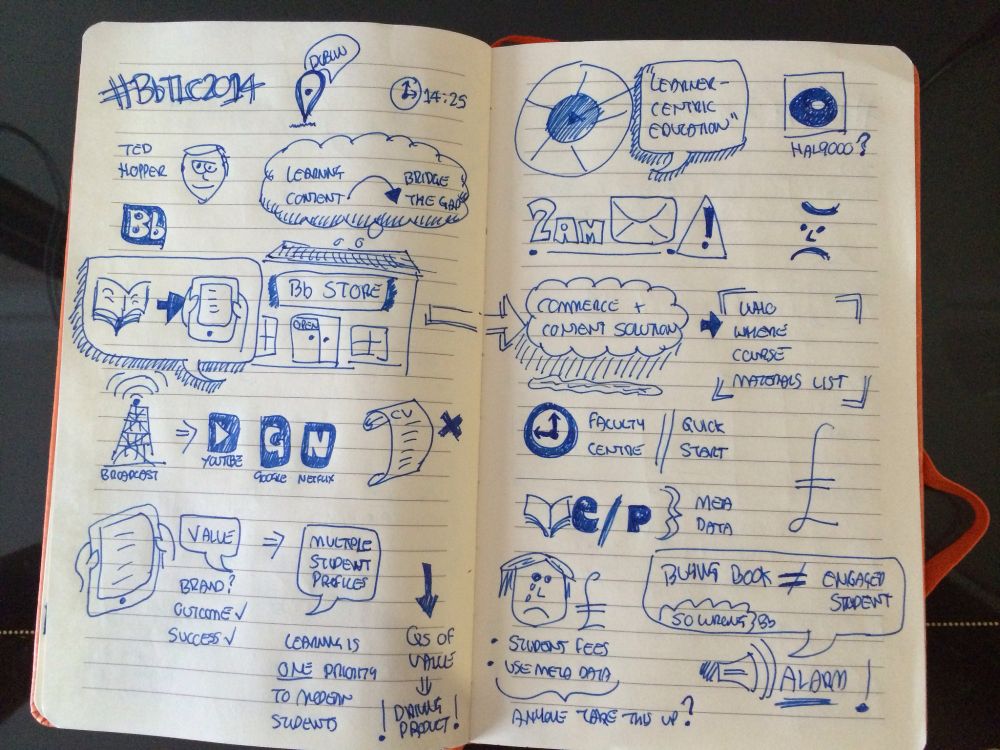 #BbTLC2014
DUBLIN
14:25
TED
HOPPER
LEARNING
CONTENT
BRIDGE
THE GAP
Bb
Bb STORE
OPEN
BROADCAST
YOUTUBE
G
GOOGLE
N
NETFLIX
CV
VALUE
BRAND?
OUTCOME ✓
SUCCESS ✓
MULTIPLE
STUDENT
PROFILES
LEARNING IS
ONE PRIORITY
TO MODERN
STUDENTS
QS OF
VALUE
! DRIVING !
PRODUCT
"LEARNER-
CENTRIC
EDUCATION"
HAL9000?
2AM
!
COMMERCE +
CONTENT SOLUTION
WHO
WHERE
COURSE
MATERIALS LIST
FACULTY
CENTRE
QUICK
START
£
E/P
META
DATA
£
• STUDENT FEES
• USE META DATA
ANYONE TAKE THIS UP?
BUYING BOOK ≠ ENGAGED
STUDENT
SO WRONG Bb
ALARM!